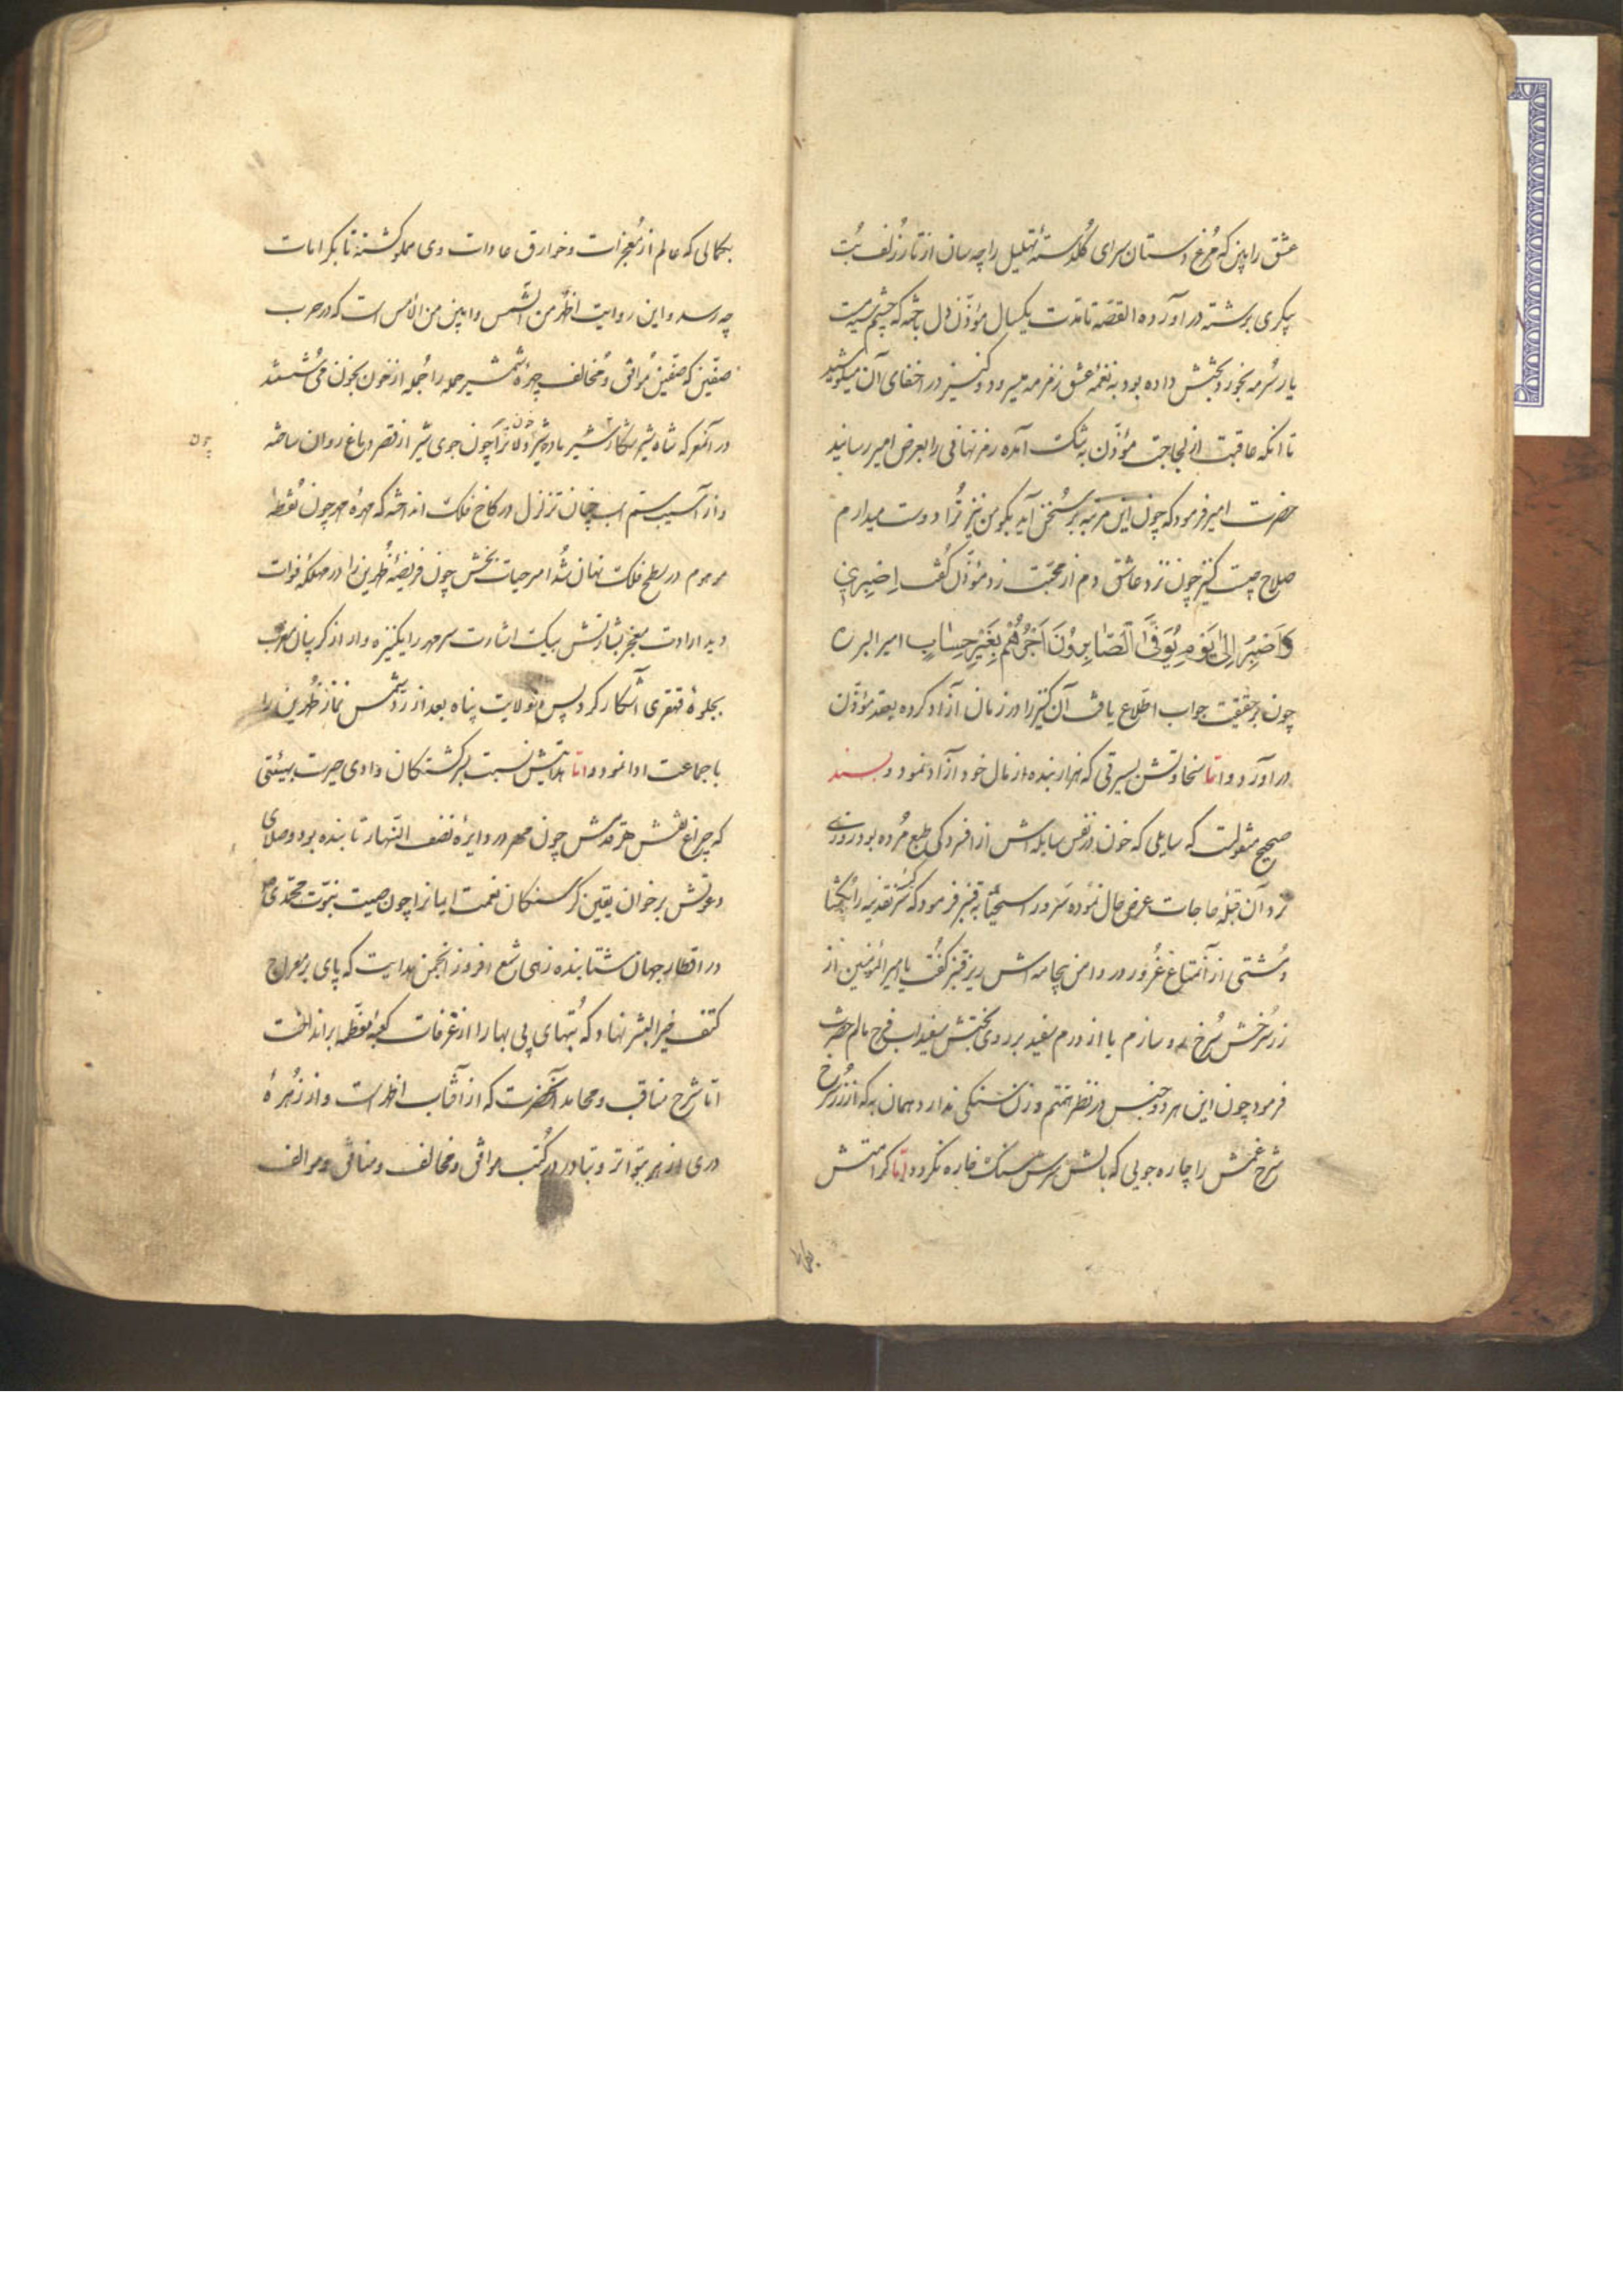 عشق را ببین که مرغ دستان سرای گلدستهٔ تهلیل را چه سان از تار زلف بت
پیکری برشته در آورده القصه تا مدت یکسال مؤذن دل باخته که چشم سیرت
یار سرمه بخورد بختش داده بود به نغمهٔ عشق زمزمه میسرود و کنیز در اخفای آن میکوشید
تا آنکه عاقبت از لجاجت مؤذن به تنگ آمده رمز نهانی را بعرض امیر رسانید
حضرت امیر فرمود که چون این مرتبه بر سخن آید بگو من نیز ترا دوست میدارم
صلاح چیست کنیز چون نزد عاشق دم از محبت زد مؤذن گفت اِصْبِرِی
وَاَصْبِرُ اِلیٰ یَوْمِ یُوَفَّی الصّابِرُونَ اَجْرَهُمْ بِغَیْرِ حِسٰابٍ امیر البرره
چون بر حقیقت جواب اطلاع یافت آن کنیز را در زمان آزاد کرده بعقد مؤذن
در آورد و اما سخاوتش بسیرتی که هزار بنده از مال خود آزاد نمود و بسند
صحیح منقولست که سایلی که خون در نفس سایله اش از افسردگی طبع مرده بود روزی
نزد آن قبلهٔ حاجات عرض حال نموده سرور اسخیا به قنبر فرمود که سر کیسهٔ نقدینه را بگشا
و مشتی از آن متاع غرور در دامن بیجامه اش ریز قنبر گفت یا امیر المؤمنین از
زر سرخش سرخ رو سازم یا از درم سفید بر روی بختش سفیداب فرح مالم حضرت
فرمود چون این هر دو جنس در نظر همتم وزن سنگی ندارد همان به که از زر سرخ
شرخ غمش را چاره جویی که بالش سرش سنگ خاره نگردد و اما کرامتش
بکمالی
بکمالی که عالم از معجزات و خوارق عادات وی مملو گشته تا بکرامات
چه رسد و این روایت اظهر من الشمس و ابین من الامس است که در حرب
صفین که صفین موافق و مخالف چهرهٔ شمشیر حمله را جمله از خون بخون می شستند
در آنمعرکه شاه شیر شکار شمشیر باد شیر دلانرا چون جوی شیر از قصر دماغ روان ساخته
خون
و از آسیب ستم اسب چنان تزلزل در کاخ فلک انداخته که مهرهٔ مهر چون نقطهٔ
موهوم در سطح فلک نهان شد امیر حیات بخش چون فریضهٔ ظهرین را در مهلکهٔ فوات
دید ارادت معجز بشارتش بیک اشارت سر مهر را یکنیزه وار از گریبان مغرب
بجلوهٔ قهقری آشکار کرد پس ولایت پناه بعد از رد شمس نماز ظهرین را
با جماعت ادا نمود و اما هدایتش نسبت بسرگشتگان وادی حیرت بهیئتی
که چراغ نقش هر قدمش چون مهر در دایرهٔ نصف النهار تابنده بود و صلای
دعوتش بر خوان یقین گرسنگان نعمت ایمانرا چون صیت نبوت محمدی ص
در اقطار جهان شتابنده زهی شمع افروز انجمن هدایت که پای بر معراج
کتف خیر البشر نهاد که بتهای بی بها را از غرفات کعبهٔ معظمه برانداخت
اما شرح مناقب و محامد آنحضرت که از آفتاب اظهر است و از زهرهٔ
دری ازهر بتواتر و تبادر در کتب موافق و مخالف و منافق و موالف